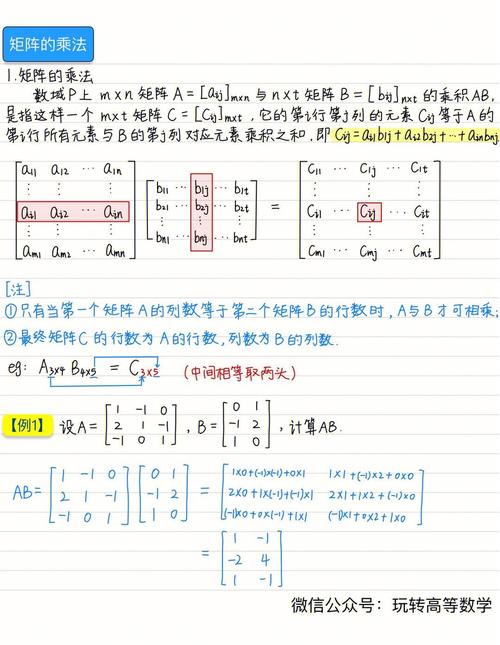 矩阵的乘法
1.矩阵的乘法
数域P上 m×n 矩阵 A=[aij]m×n 与 n×t 矩阵 B=[bij]n×t 的乘积AB,
是指这样一个 m×t 矩阵 C=[Cij]m×t ,它的第i行第j列的元素 Cij 等于A的
第i行所有元素与B的第j列对应元素乘积之和.即 Cij=ai1b1j+ai2b2j+…+ainbnj.
[a11 a12 … a1n] [b11 … b1j … b1t] [C11 … C1j … C1t]
[⋮ ⋮ ⋮] [b21 … b2j … b2t] [⋮ ⋮ ⋮]
[ai1 ai2 … ain] [⋮ ⋮ ⋮] = [Ci1 … Cij … Cit]
[⋮ ⋮ ⋮] [bn1 … bnj … bnt] [⋮ ⋮ ⋮]
[am1 am2 … amn] [Cm1 … Cmj … Cmt]
[注]
①只有当第一个矩阵A的列数等于第二个矩阵B的行数时,A与B才可相乘;
②最终矩阵C的行数为A的行数,列数为B的列数.
eg: A3×4 B4×5 = C3×5 (中间相等取两头)
【例1】 设A=[1 -1 0; 2 1 -1; -1 0 1], B=[0 1; -1 2; 1 0], 计算AB.
AB=[1 -1 0; 2 1 -1; -1 0 1][0 1; -1 2; 1 0] = [1×0+(-1)×(-1)+0×1 1×1+(-1)×2+0×0; 2×0+1×(-1)+(-1)×1 2×1+1×2+(-1)×0; (-1)×0+0×(-1)+1×1 (-1)×1+0×2+1×0]
= [1 -1; -2 4; 1 -1]
微信公众号：玩转高等数学